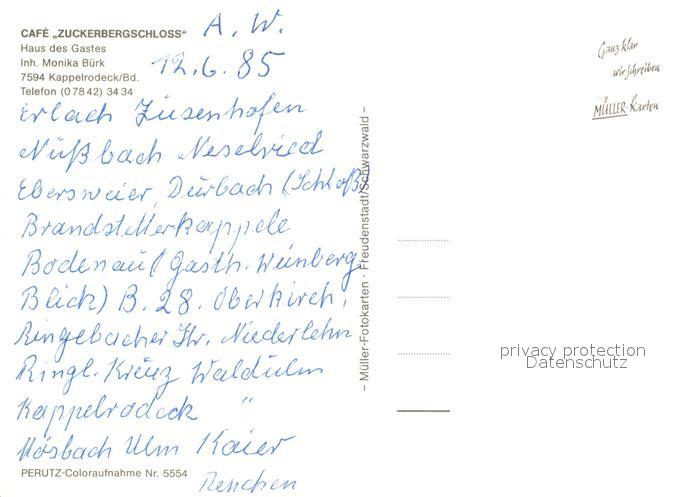 CAFÉ „ZUCKERBERGSCHLOSS“
Haus des Gastes
Inh. Monika Bürk
7594 Kappelrodeck/Bd.
Telefon (0 78 42) 34 34
A. W.
12.6.85
Erlach Zusenhofen
Nußbach Nesselried
Ebersweier, Durbach (Schloß)
Brandstetterkappele
Bodenau (Gasth. Weinberg-
Blick) B. 28. Oberkirch,
Ringelbacher Str. Niederlehn
Ringl. Kreuz Waldulm
Kappelrodeck "
Mösbach Ulm Kaier
Renchen
PERUTZ-Coloraufnahme Nr. 5554
– Müller-Fotokarten · Freudenstadt/Schwarzwald –
Ganz klar
wir schreiben
MÜLLER-Karten
privacy protection
Datenschutz